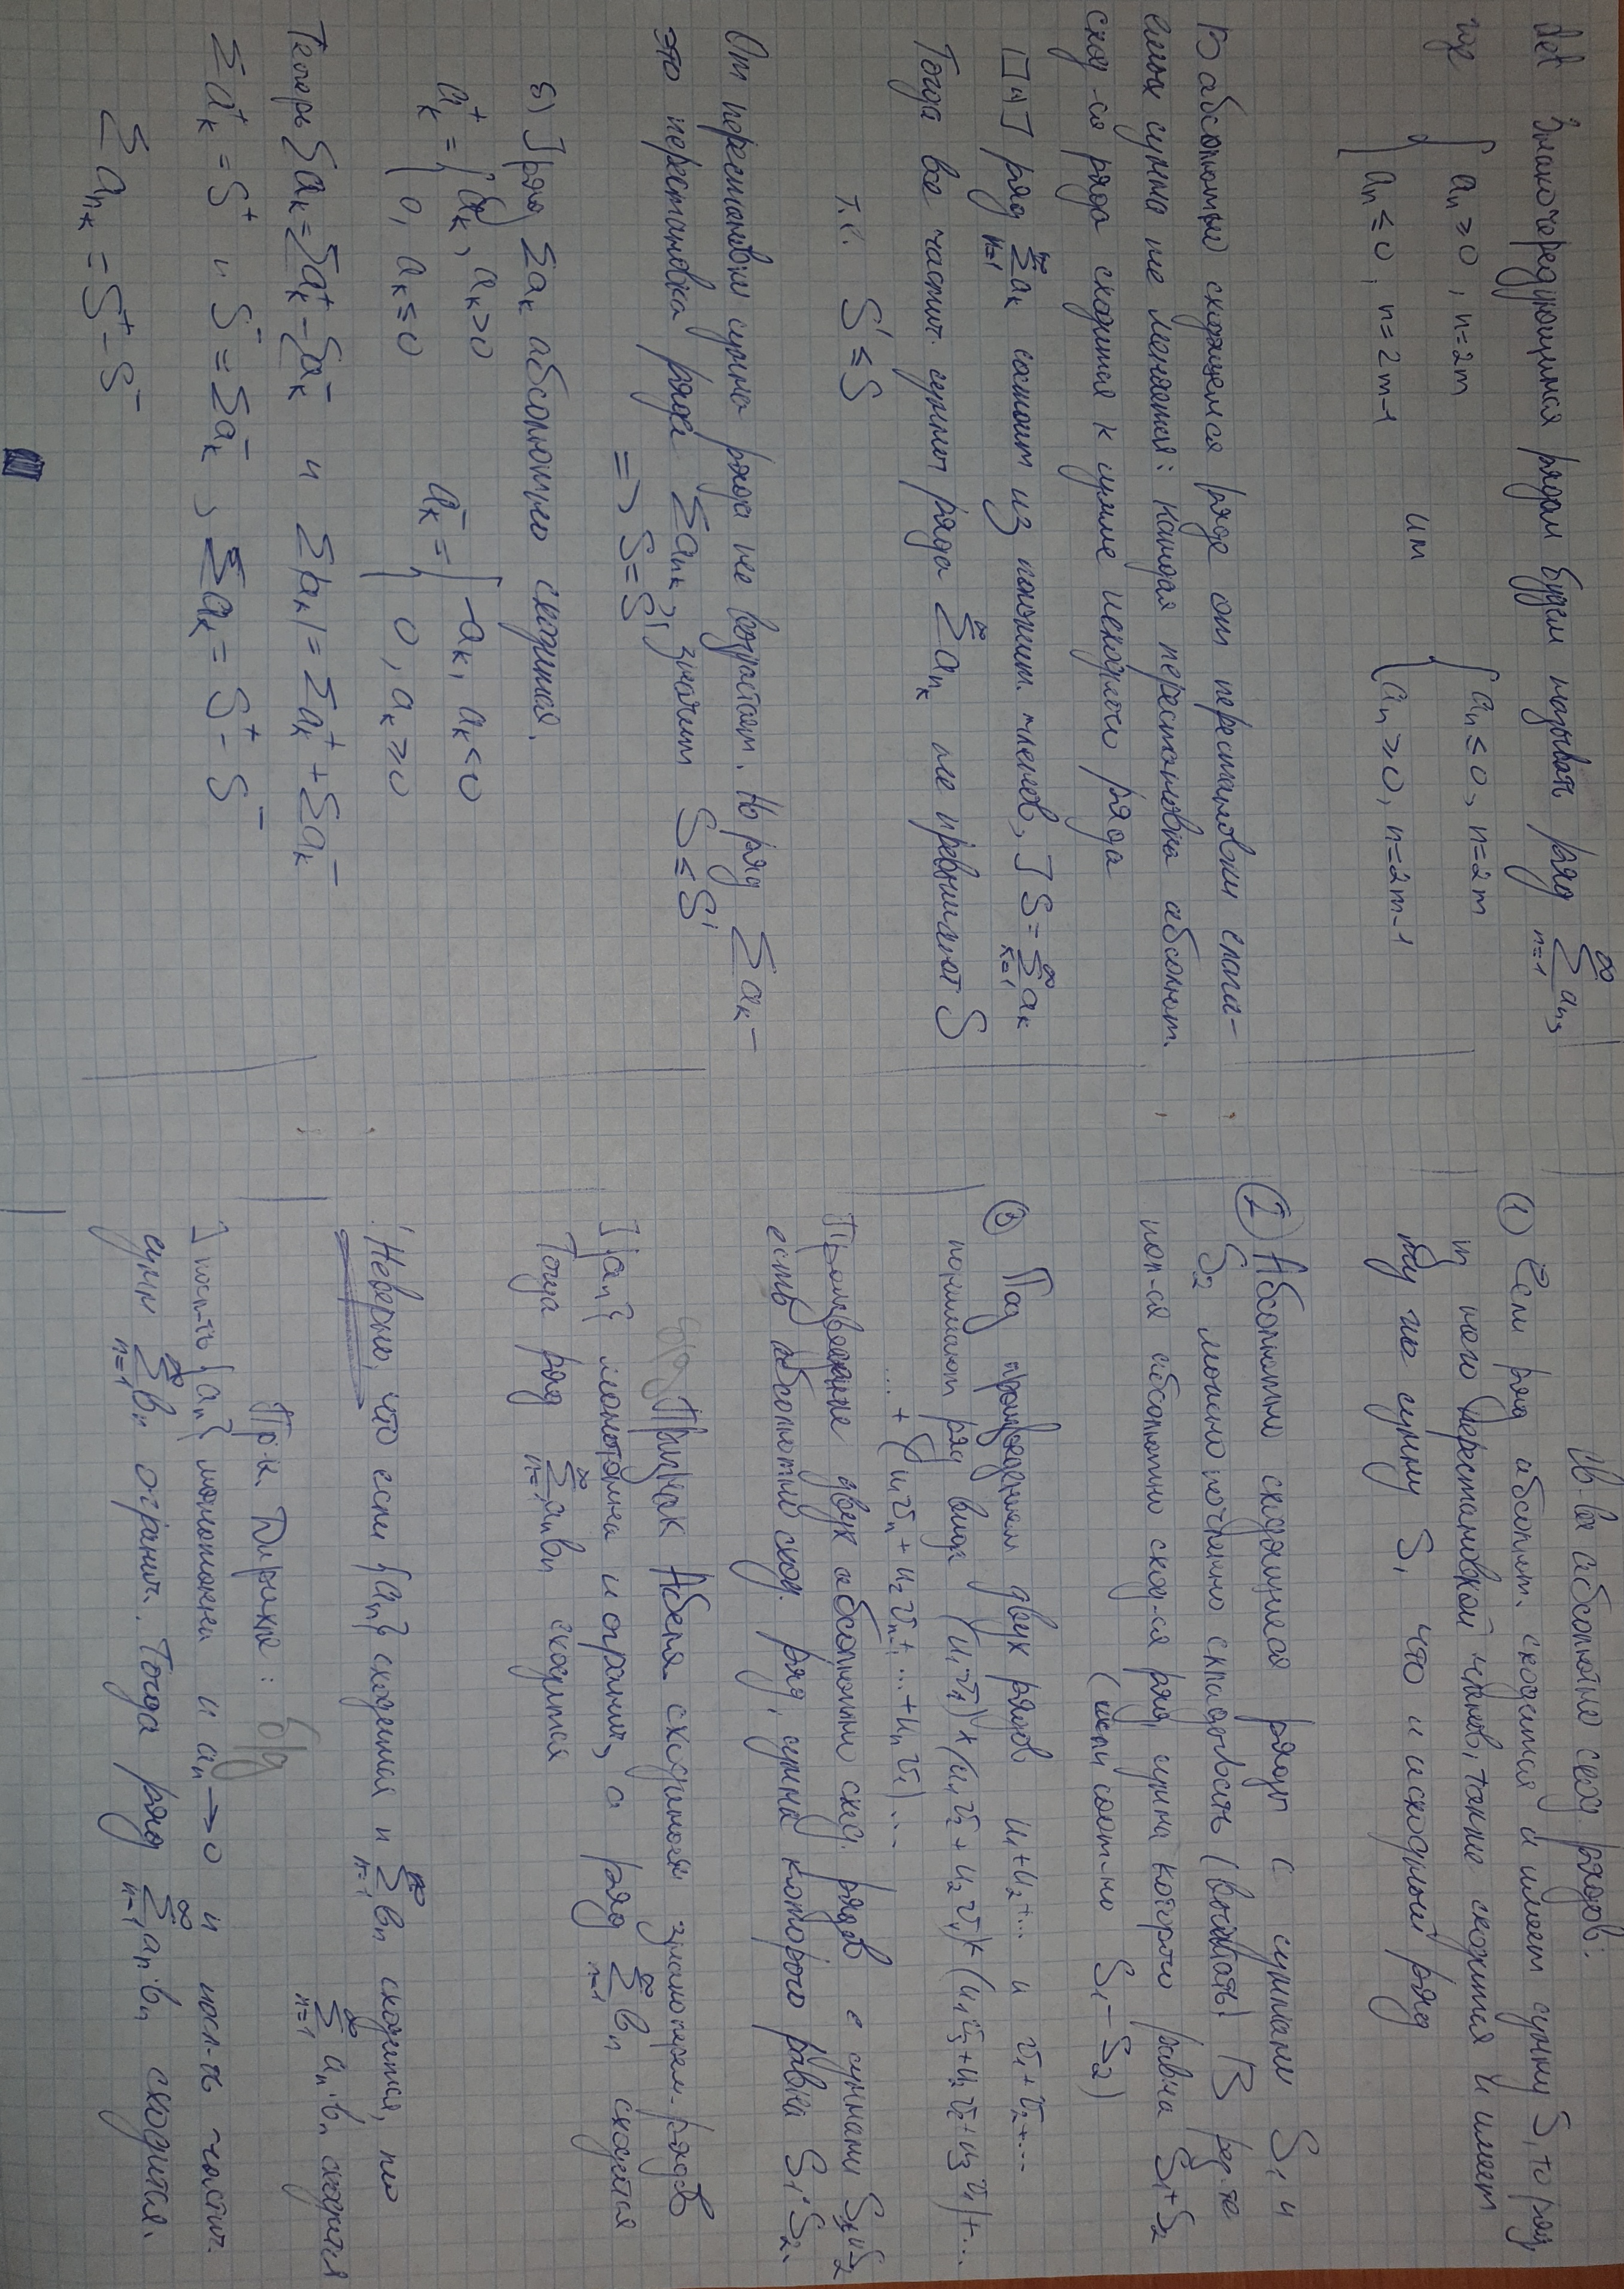 def Знакочередующимся рядом будем называть ряд ∞∑n=1 an,
где { an ≥ 0, n=2m
an ≤ 0, n=2m-1
или
{ an ≤ 0, n=2m
an ≥ 0, n=2m-1
В абсолютно сходящемся ряде от перестановки слага-
емых сумма не меняется: каждая перестановка абсолют.
сход-ся ряда сходится к сумме исходного ряда
□ а) ] ряд ∞∑k=1 ak состоит из полож. членов, ] S = ∞∑k=1 ak
Тогда все частич. суммы ряда ∞∑ ank не превышают S
т.е. S' ≤ S
От перестановки сумма ряда не возрастает. Но ряд ∑ak –
это перестановка ряда ∑ank, значит S ≤ S'
=> S = S'
б) ] ряд ∑ak абсолютно сходится.
ak+ = { ak, ak > 0
0, ak ≤ 0
ak- = { -ak, ak < 0
0, ak ≥ 0
Теперь ∑ak = ∑ak+ - ∑ak- и ∑|ak| = ∑ak+ + ∑ak-
∑ak+ = S+ и S- = ∑ak-, ∑ak = S+ - S-
∑ank = S+ - S-
Св-ва абсолютно сход. рядов:
① Если ряд абсолют. сходится и имеет сумму S, то ряд,
из него перестановкой членов, также сходится и имеет
ту же сумму S, что и исходный ряд
② Абсолютно сходящиеся ряды с суммами S1 и
S2 можно почленно складывать (вычитать). В рез-те
пол-ся абсолютно сход-ся ряд, сумма которого равна S1+S2
(или соот-но S1-S2)
③ Под произведением двух рядов u1+u2+... и v1+v2+...
понимают ряд вида (u1v1)+(u1v2+u2v1)+(u1v3+u2v2+u3v1)+...
...+(u1vn+u2vn-1...+unv1)...
Произведение двух абсолютно сход. рядов с суммами S1 и S2
есть абсолютно сход. ряд, сумма которого равна S1·S2.
б/д Признак Абеля сходимости знакоперем. рядов
] {an} монотонна и огранич, а ряд ∞∑n=1 bn сходится
Тогда ряд ∞∑n=1 anbn сходится
Неверно, что если {an} сходится и ∞∑n=1 bn сходится, то
∞∑n=1 an·bn сходится
Пр-к Дирихле: б/д
] посл-ть {an} монотонна и an→0 и посл-ть частич.
сумм ∞∑n=1 bn огранич. Тогда ряд ∞∑n=1 an·bn сходится.